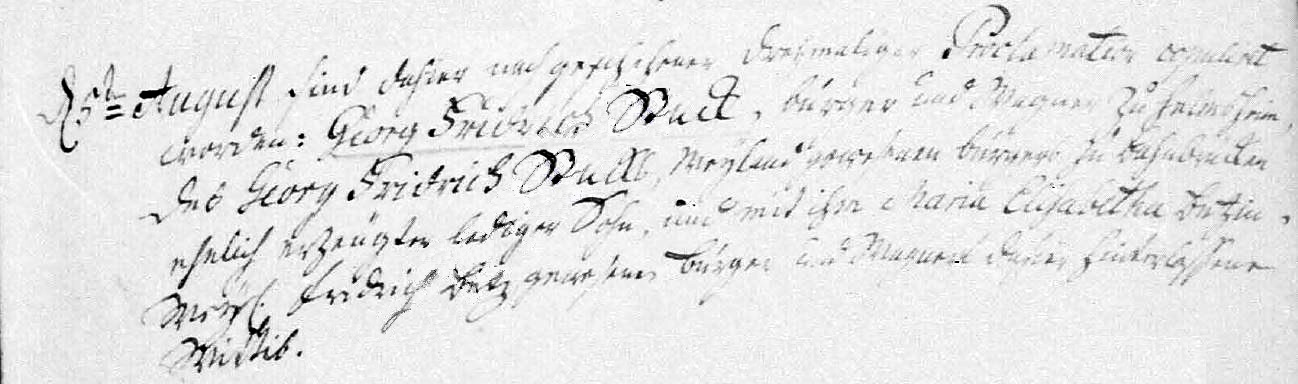 D. 5te August sind dahier nach geschehener dreymaliger Proclamation copulirt
worden: Georg Fridrich Stuck, burger und Wagner zu Helmsheim,
des Georg Fridrich Stucks, Weyland gewesenen burgers zu Bahnbrücken
ehelich erzeugter lediger Sohn, und mit ihm Maria Elisabetha Betzin,
Weyl. Fridrich Betz gewesenen burger und Wagners dahier hinterlassene
Wittib.